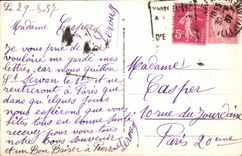 Le 29-8-57
Madame Casper
Je vous prie de
vouloire me garde mes
lettres, car nous quittons
St le 1er et ne
rentreront à Paris que
dans quelques jours
nous espérons que vous
êtes tous en bonne santé
recevez pour vous tous
nos bons souvenirs
et un Bon Baiser à Pierre
Madame
Casper
10 rue du Jourdain
Paris 20eme
5c